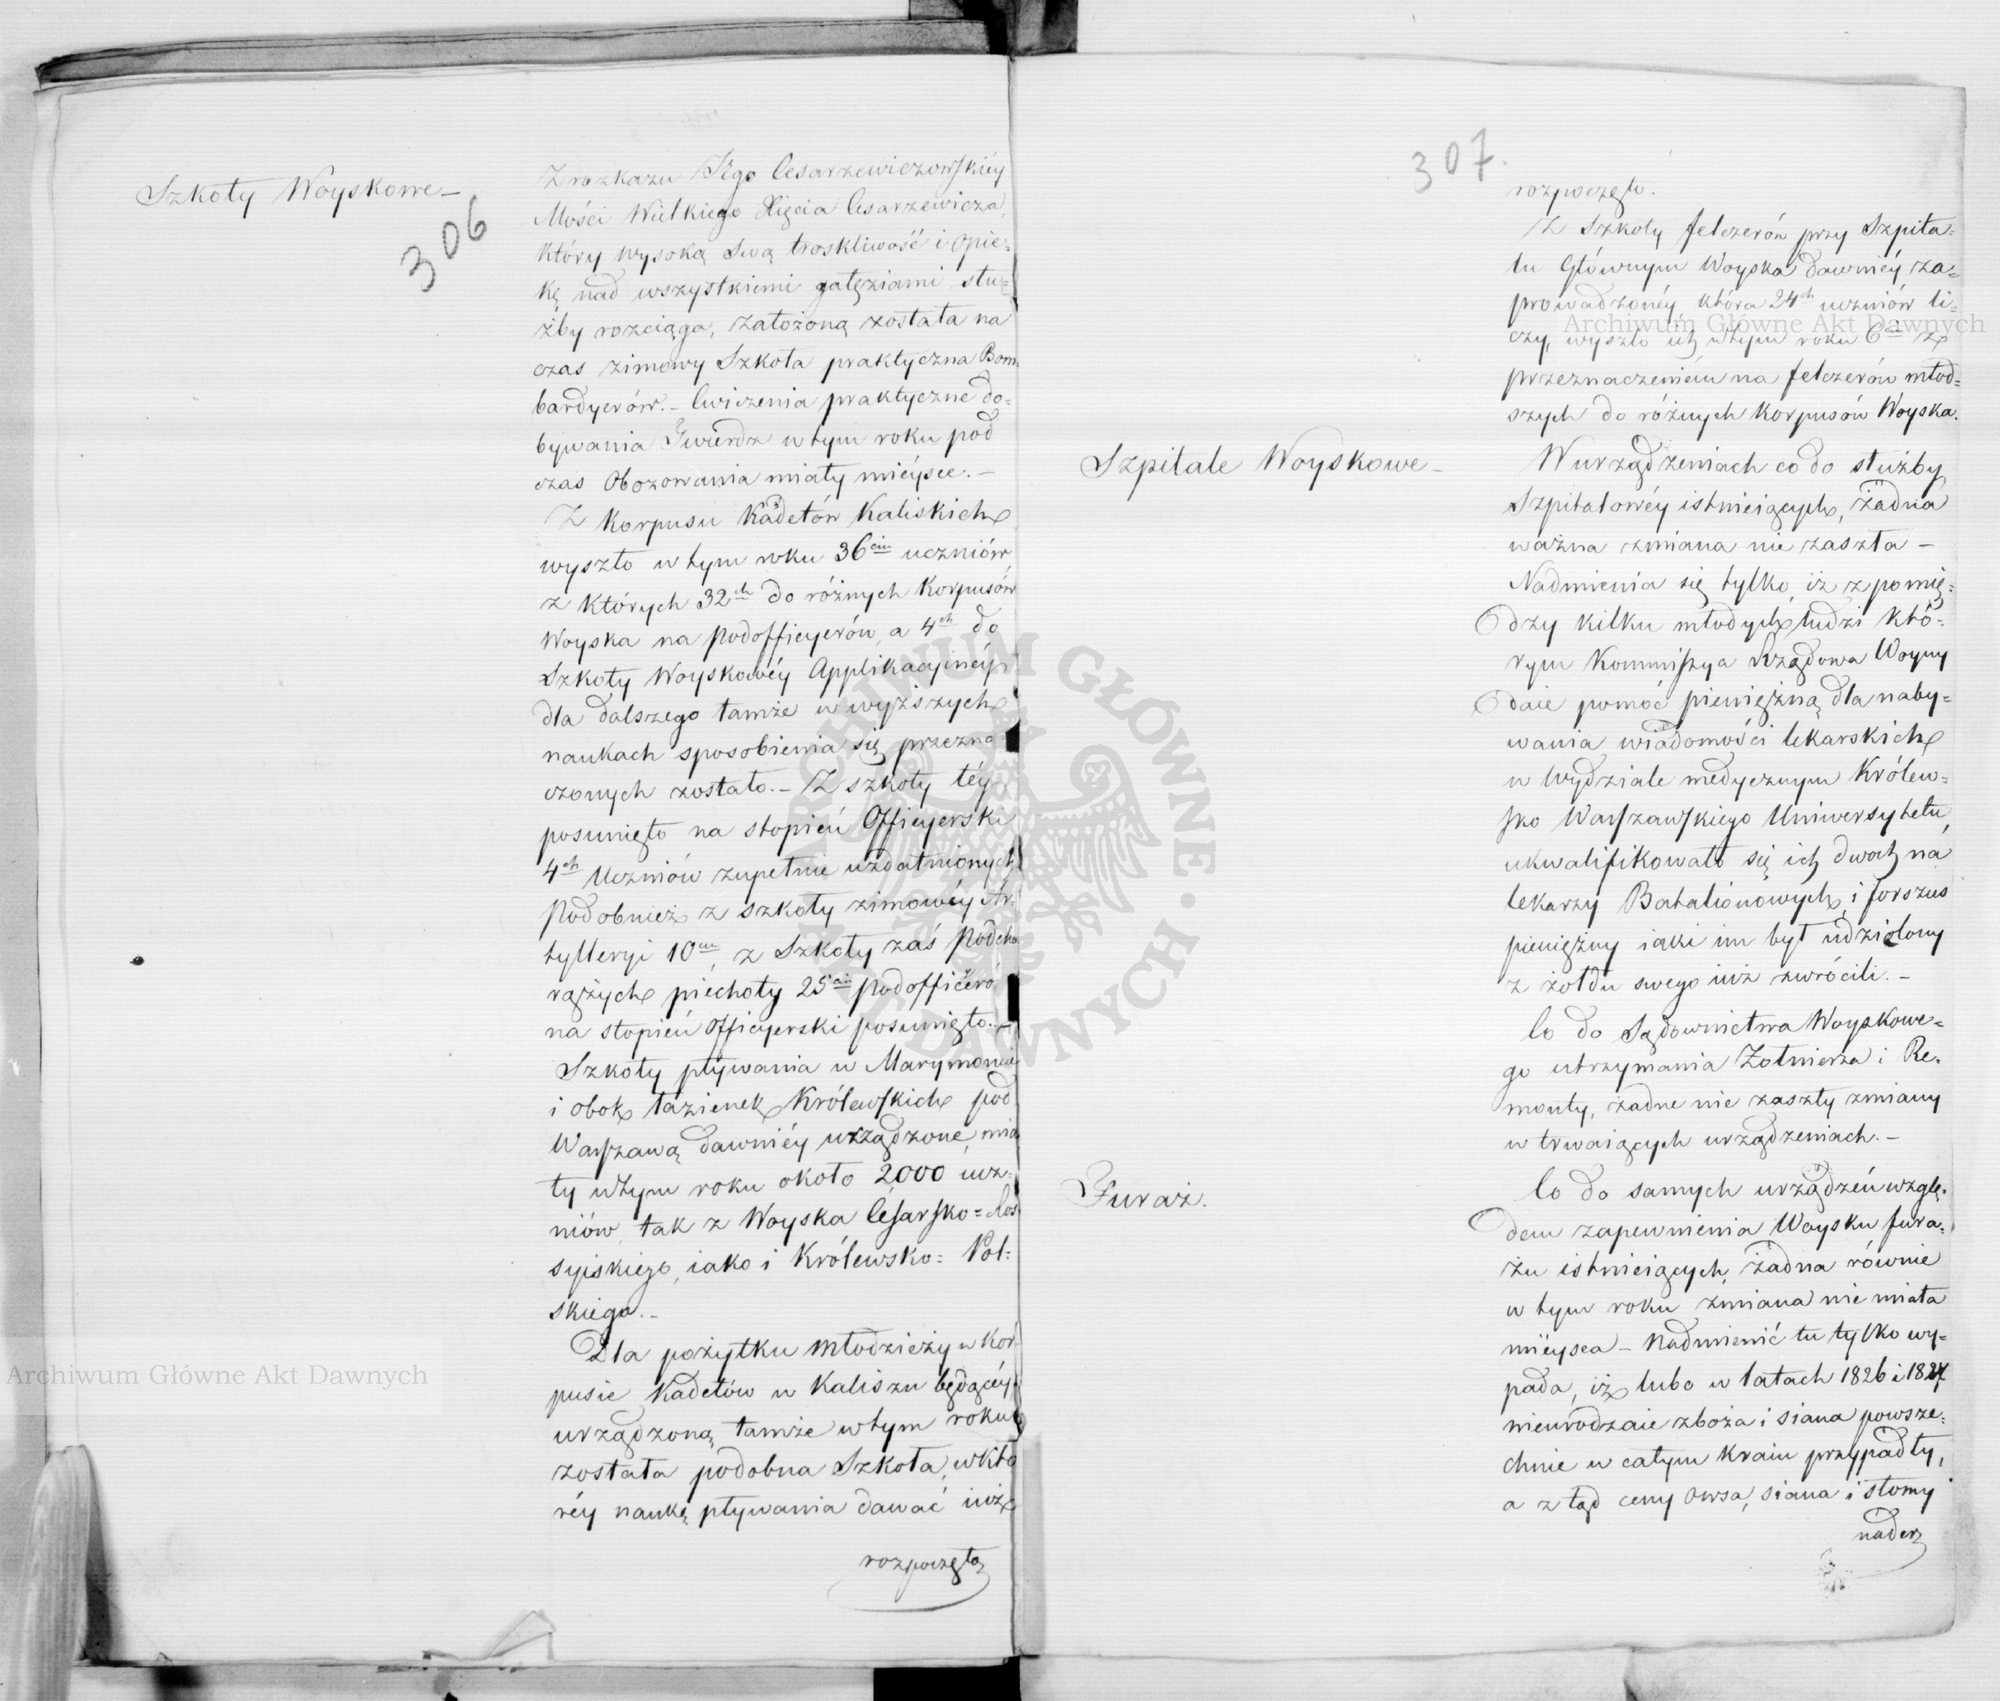 306
Szkoły Woyskowe –
Z rozkazu Jego Cesarzewiczowskiéy
Mości Wielkiego Xięcia Cesarzewicza,
który wysoką swą troskliwość i opie=
kę nad wszystkiemi gałęziami słu=
żby rozciąga, założoną została na
czas zimowy Szkoła praktyczna Bom
bardyerów. – Cwiczenia praktyczne do=
bywania Twierdz w tym roku pod
czas Obozowania miały mieysce. –
Z Korpusu Kadetów Kaliskich
wyszło w tym roku 36ciu uczniów
z których 32ch do różnych Korpusów
Woyska na Podofficyerów, a 4ch do
Szkoły Woyskowéy Applikacyinéy
dla dalszego tamże w wyższych
naukach sposobienia się przezna=
czonych zostało. – Z szkoły téy
posunięto na stopień Officyerski
4ch Uczniów zupełnie uzdatnionych
Podobnież z szkoły zimowéy Ar
tylleryi 10ciu, z Szkoły zaś Podcho
rążych piechoty 25ciu Podofficeró
na stopień Officyerski posunięto. –
Szkoły pływania w Marymoncie
i obok łazienek Królewskich pod
Warszawą dawniéy urządzone, mia
ły w tym roku około 2,000 ucz=
niów, tak z Woyska Cesarsko=Ros
syiskiego, iako i Królewsko=Pol=
skiego. –
Dla pożytku młodzieży w Kor
pusie Kadetów w Kaliszu będącéy
urządzoną tamże w tym roku
została podobna Szkoła, w któ
réy naukę pływania dawać iuż
rozpoczęto
307.
rozpoczęto.
Z Szkoły felczerów przy Szpita=
lu Głównym Woyska dawniéy za=
prowadzonéy, która 24ch uczniów li=
czy, wyszło ich w tym roku 6ciu z
przeznaczeniem na felczerów młod=
szych do różnych Korpusów Woyska.
Szpitale Woyskowe –
W urządzeniach co do służby
Szpitalowéy istnieiących, żadna
ważna zmiana nie zaszła –
Nadmienia się tylko, iż z pomię=
dzy kilku młodych ludzi któ=
rym Kommissya Rządowa Woyny
daie pomoc pieniężną dla naby=
wania wiadomości lekarskich
w Wydziale medycznym Królew=
sko Warszawskiego Uniwersytetu,
ukwalifikowało się ich dwóch na
lekarzy Batalionowych, i forszus
pieniężny iaki im był udzielony
z żołdu swego iuż zwrócili. –
Co do Sądownictwa Woyskowe=
go utrzymania Żołnierza i Re=
monty, żadne nie zaszły zmiany
w trwaiących urządzeniach. –
Furaż.
Co do samych urządzeń wzglę=
dem zapewnienia Woysku fura=
żu istnieiących, żadna równie
w tym roku zmiana nie miała
mieysca – Nadmienić tu tylko wy=
pada, iż lubo w latach 1826 i 1827
nieurodzaie zboża i siana powsze=
chnie w całym Kraiu przypadły,
a z tąd ceny owsa, siana i słomy
nader
ARCHIWUM GŁÓWNE AKT DAWNYCH
Archiwum Główne Akt Dawnych
Archiwum Główne Akt Dawnych